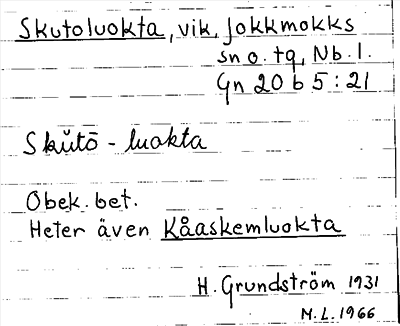 Skutoluokta, vik, Jokkmokks
sn o. tg, Nb. l.
Gn 20 b 5:21
Skŭtō - luokta
Obek. bet.
Heter även Kåaskemluokta
H. Grundström 1931
M.L. 1966